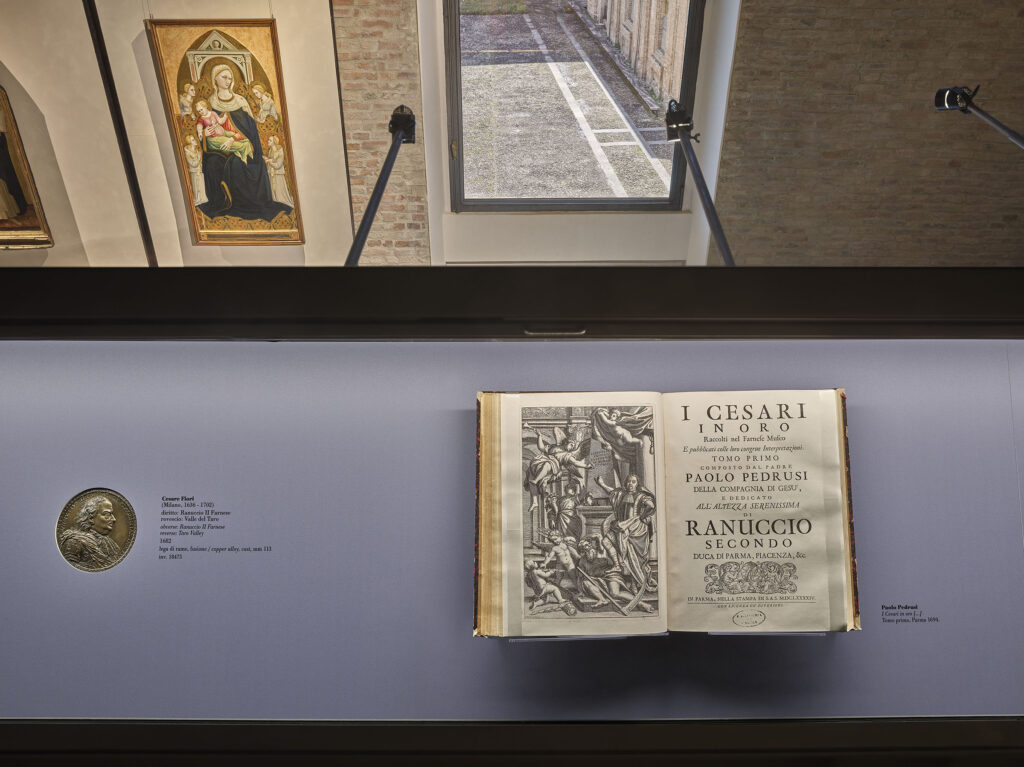 Cesare Fiori
(Milano, 1636 - 1702)
diritto: Ranuccio II Farnese
rovescio: Valle del Taro
obverse: Ranuccio II Farnese
reverse: Taro Valley
1682
lega di rame, fusione / copper alloy, cast, mm 113
inv. 10473
I CESARI
IN ORO
Raccolti nel Farnese Museo
E pubblicati colle loro congrue Interpretazioni.
TOMO PRIMO
COMPOSTO DAL PADRE
PAOLO PEDRUSI
DELLA COMPAGNIA DI GESU',
E DEDICATO
ALL'ALTEZZA SERENISSIMA
DI
RANUCCIO
SECONDO
DUCA DI PARMA, PIACENZA, &c.
IN PARMA, NELLA STAMPA DI S.A.S. M.DC.LXXXXIV.
CON LICENZA DE' SUPERIORI.
Paolo Pedrusi
I Cesari in oro [...]
Tomo primo, Parma 1694